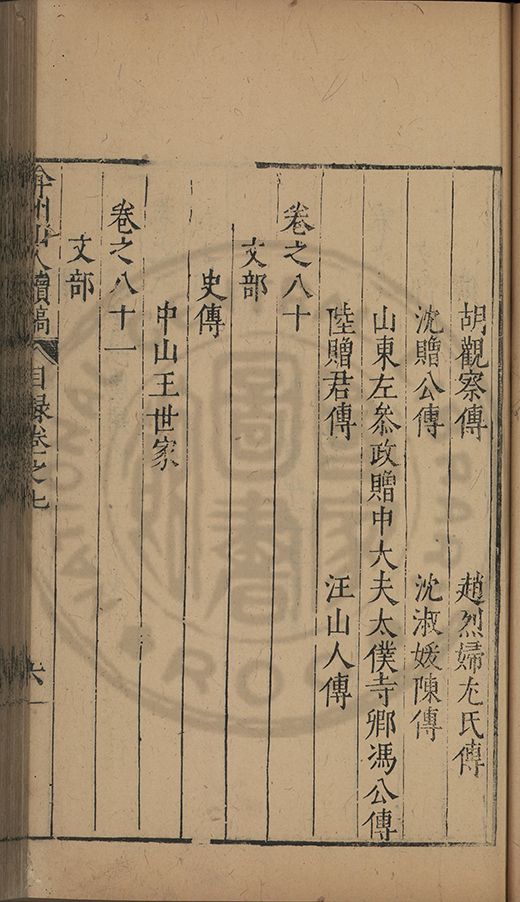 胡觀察傳　趙烈婦尤氏傳
沈贈公傳　沈淑媛陳傳
山東左叅政贈中大夫太僕寺卿馮公傳
陸贈君傳　汪山人傳
卷之八十
文部
史傳
中山王世家
卷之八十一
文部
弇州山人續稿　目録卷之七　六